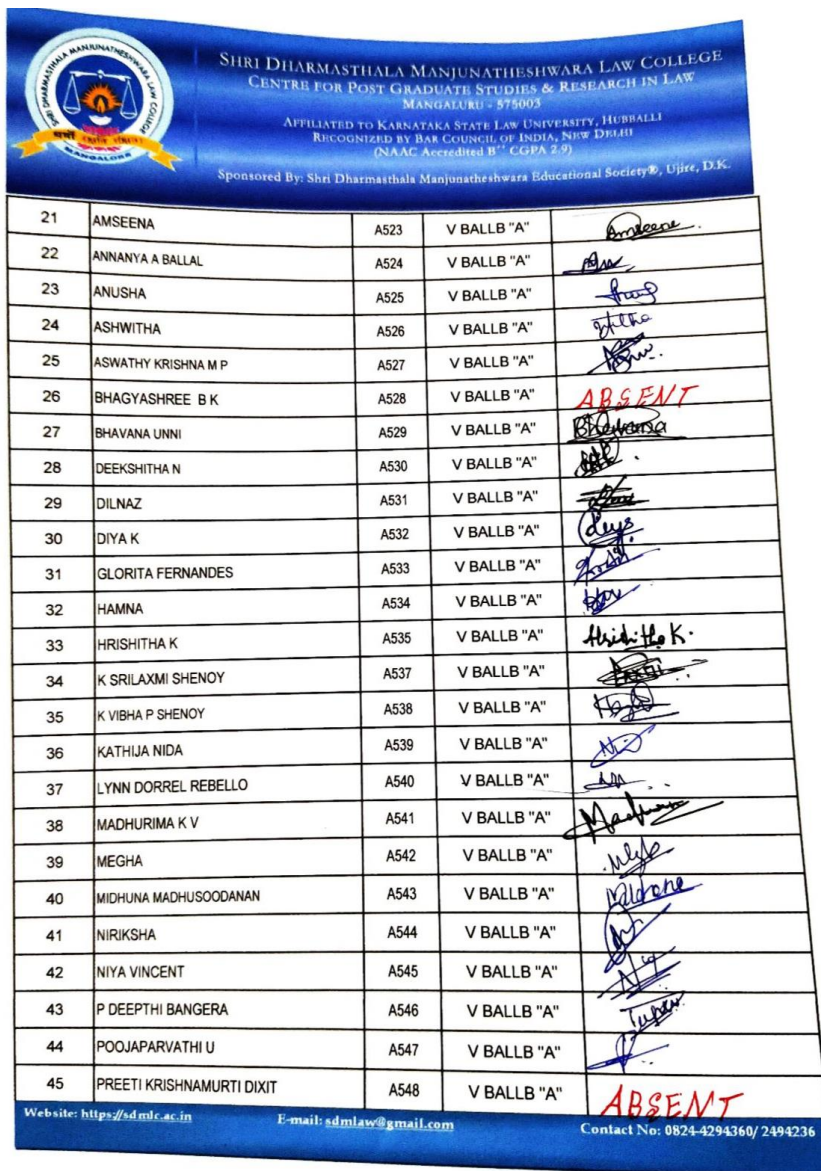 SHRI DHARMASTHALA MANJUNATHESHWARA LAW COLLEGE
CENTRE FOR POST GRADUATE STUDIES & RESEARCH IN LAW
MANGALURU - 575003
AFFILIATED TO KARNATAKA STATE LAW UNIVERSITY, HUBBALLI
RECOGNIZED BY BAR COUNCIL OF INDIA, NEW DELHI
(NAAC Accredited B++ CGPA 2.9)
Sponsored By: Shri Dharmasthala Manjunatheshwara Educational Society®, Ujire, D.K.
SHRI DHARMASTHALA MANJUNATHESHWARA LAW COLLEGE
MANGALORE
21 AMSEENA A523 V BALLB "A" Amseena
22 ANNANYA A BALLAL A524 V BALLB "A"
23 ANUSHA A525 V BALLB "A"
24 ASHWITHA A526 V BALLB "A"
25 ASWATHY KRISHNA M P A527 V BALLB "A"
26 BHAGYASHREE B K A528 V BALLB "A" ABSENT
27 BHAVANA UNNI A529 V BALLB "A" Bhavana
28 DEEKSHITHA N A530 V BALLB "A"
29 DILNAZ A531 V BALLB "A"
30 DIYA K A532 V BALLB "A"
31 GLORITA FERNANDES A533 V BALLB "A"
32 HAMNA A534 V BALLB "A"
33 HRISHITHA K A535 V BALLB "A" Hrishitha K.
34 K SRILAXMI SHENOY A537 V BALLB "A"
35 K VIBHA P SHENOY A538 V BALLB "A"
36 KATHIJA NIDA A539 V BALLB "A"
37 LYNN DORREL REBELLO A540 V BALLB "A"
38 MADHURIMA K V A541 V BALLB "A"
39 MEGHA A542 V BALLB "A"
40 MIDHUNA MADHUSOODANAN A543 V BALLB "A"
41 NIRIKSHA A544 V BALLB "A"
42 NIYA VINCENT A545 V BALLB "A"
43 P DEEPTHI BANGERA A546 V BALLB "A"
44 POOJAPARVATHI U A547 V BALLB "A"
45 PREETI KRISHNAMURTI DIXIT A548 V BALLB "A" ABSENT
Website: https://sdmlc.ac.in E-mail: sdmlaw@gmail.com Contact No: 0824-4294360/ 2494236